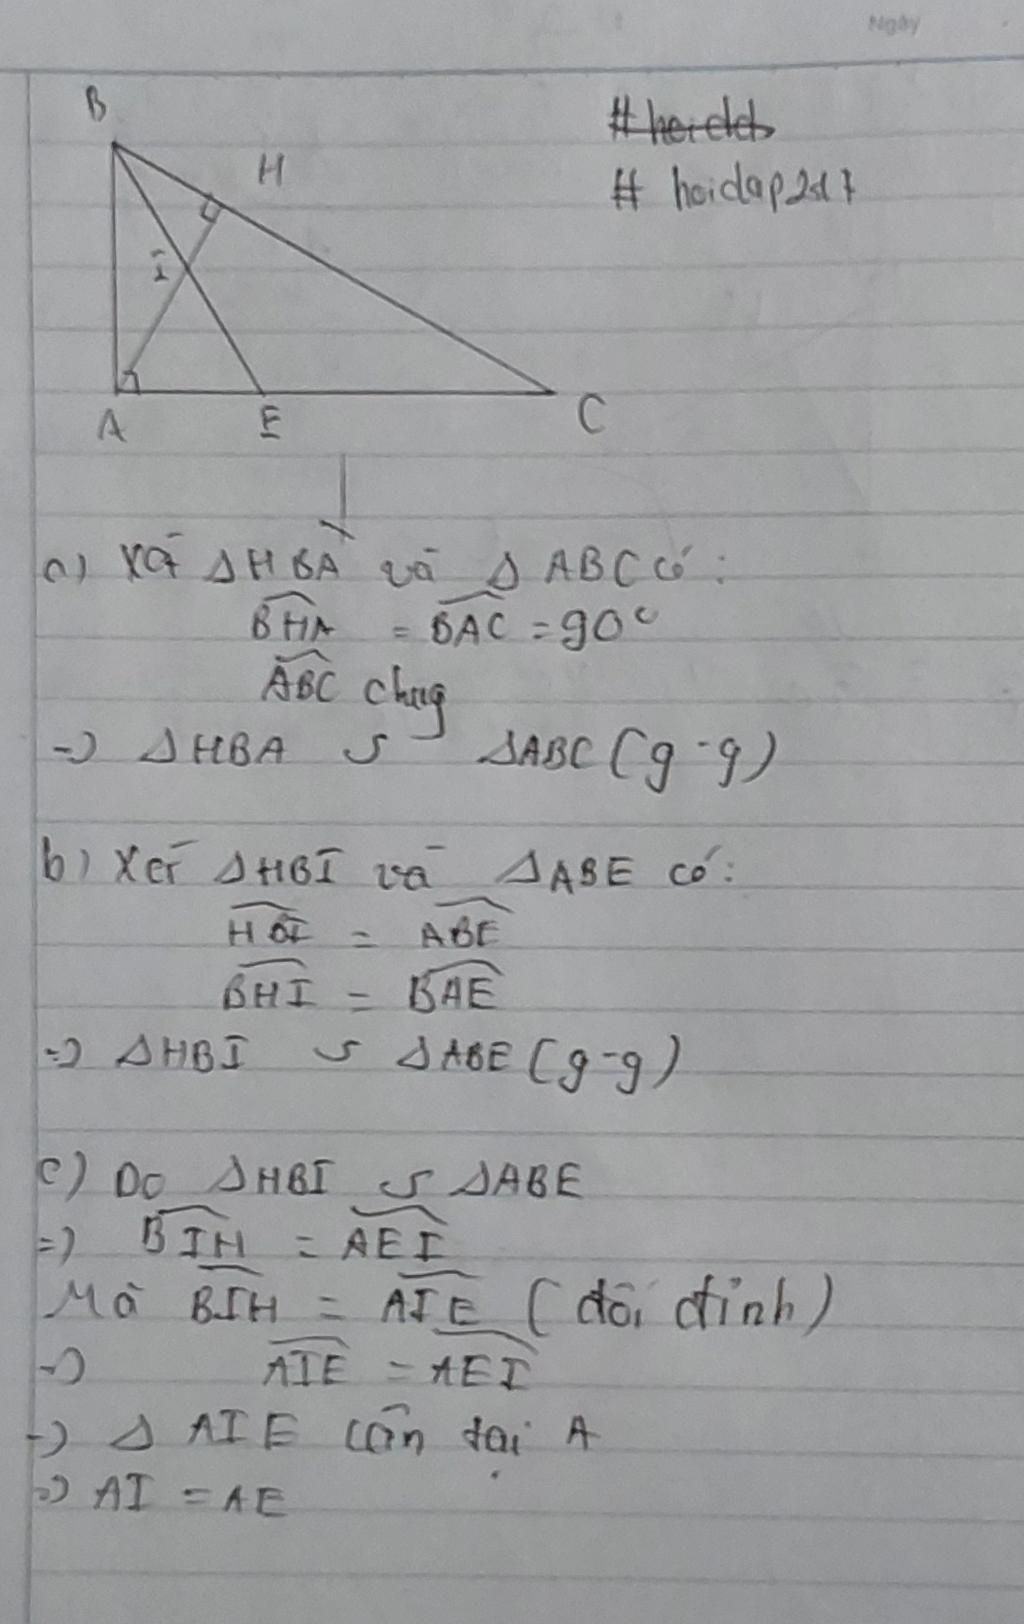 Ngày
B
H
# hoidap247
I
A
E
C
a) Xét ΔHBA và ΔABC có:
BHA = BAC = 90°
ABC chung
=> ΔHBA ∽ ΔABC (g-g)
b) Xét ΔHBI và ΔABE có:
HBI = ABE
BHI = BAE
=> ΔHBI ∽ ΔABE (g-g)
c) Do ΔHBI ∽ ΔABE
=> BIH = AEI
Mà BIH = AIE (đối đỉnh)
=> AIE = AEI
=> Δ AIE cân tại A
=> AI = AE